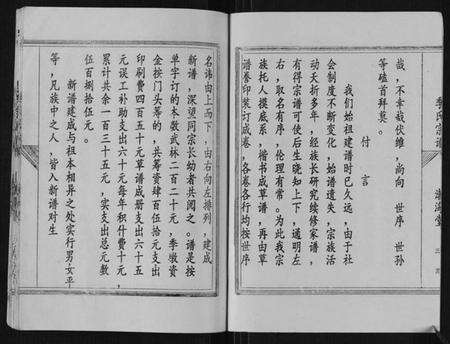 季氏宗谱
哉,不幸哉伏维,尚向 世序 世孙
等磕首拜奠。
付言
我们始祖建谱时已久远,由于社
会制度不断变化,始谱遗失,宗族活
动夭折多年,经族长研究续修家谱,
有得宗谱可使后生晓知上下,道明左
右,取名有序,伦理有常。为此我宗
族托人摸底系,楷书成草谱,再由草
谱誊印装订成卷,各卷各行均按世序
名讳由上而下,由右向左排列,建成
新谱,深望同宗长幼者共阅之。谱是按
单字订的本数武林二百二十元,季墩资
金按门头筹的,共筹资肆百伍拾元支出
印刷费四百五十元草谱成册支出六十五
元误工补助支出六十元每年积什费十元,
累计共余一百三十五元,实支出总元数
伍百捌拾伍元。
新谱建成与祖本相异之处实行男女平
等,凡族中之人,皆入新谱对生